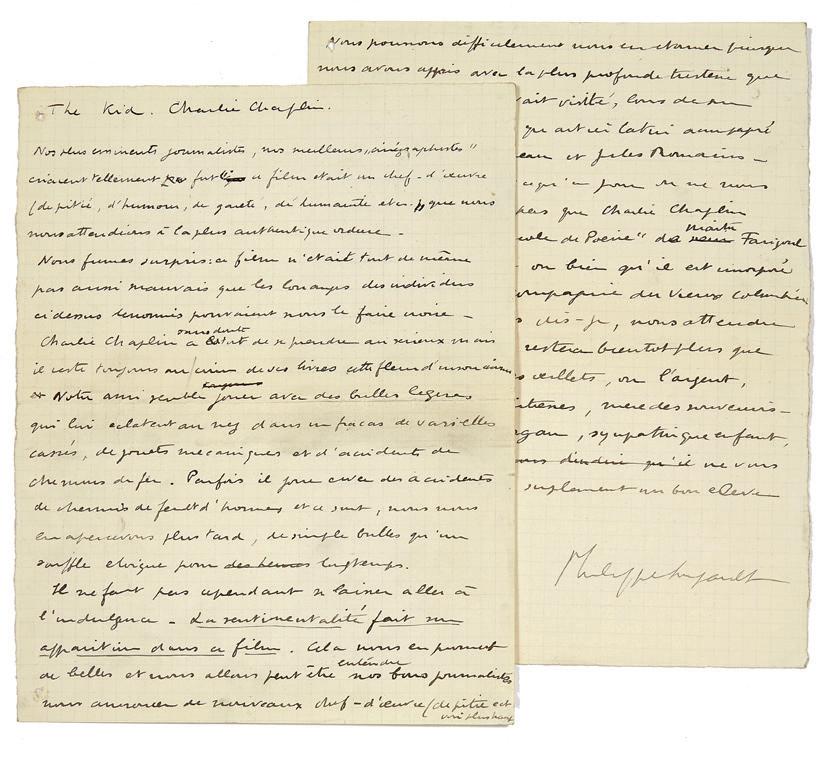 The Kid. Charlie Chaplin.
Nos plus éminents journalistes, nos meilleurs "cinégraphistes"
criaient tellement fort ce film était un chef-d'œuvre
(de pitié, d'humour, de gaieté, de humanité etc.) que nous
nous attendions à la plus authentique ordure -
Nous fumes surpris : ce film n'était tout de même
pas aussi mauvais que les louanges des individus
ci dessus dénommés pouvaient nous le faire croire -
Charlie Chaplin a sans doute de se prendre au sérieux mais
il reste toujours au de ses lèvres cette fleur d'insouciance
Notre ami semble jouer avec des bulles légères
qui lui éclatent au nez dans un fracas de vaisselles
cassés, de jouets mécaniques et d'accidents de
chemins de fer. Parfois il joue avec des accidents
de chemins de fer et d'hommes et ce sont, nous nous
en apercevons plus tard, de simple bulles qu'un
souffle éloigne pour des heures longtemps.
Il ne faut pas cependant se laisser aller à
l'indulgence - La sentimentalité fait son
apparition dans ce film. Cela nous en promet
de belles et nous allons peut être entendre nos bons journalistes
nous annoncer de nouveaux chef-d'œuvre (de pitié etc
voir plus haut
Nous pouvons difficilement nous en étonner puisque
nous avons appris avec la plus profonde tristesse que
vait visité, lors de son
que cet été la
eau et Jules Romains -
ce qu'on ne nous
pas que Charlie Chaplin
cole de Poésie" de maître vieux Farigoul
- ou bien qu'il est incorporé
ompagnie du Vieux Colombier
s dis-je, nous attendre
restera bientôt plus que
s œillets, ou l'argent,
, mère des souvenirs -
, sympathique enfant,
qu'il ne vous
suplement un bon élève